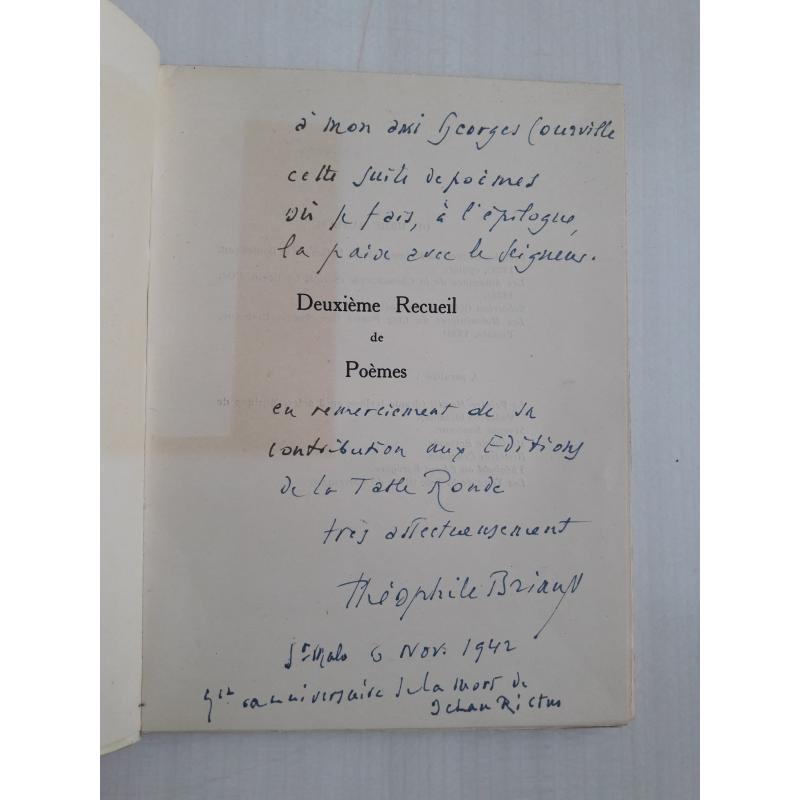 à mon ami Georges Courville
cette suite de poèmes
où je fais, à l'épilogue,
la paix avec le Seigneur.
Deuxième Recueil
de
Poèmes
en remerciement de sa
contribution aux Editions
de la Table Ronde
très affectueusement
Théophile Briant
St Malo 6 Nov. 1942
anniversaire de la mort de
Jehan Rictus